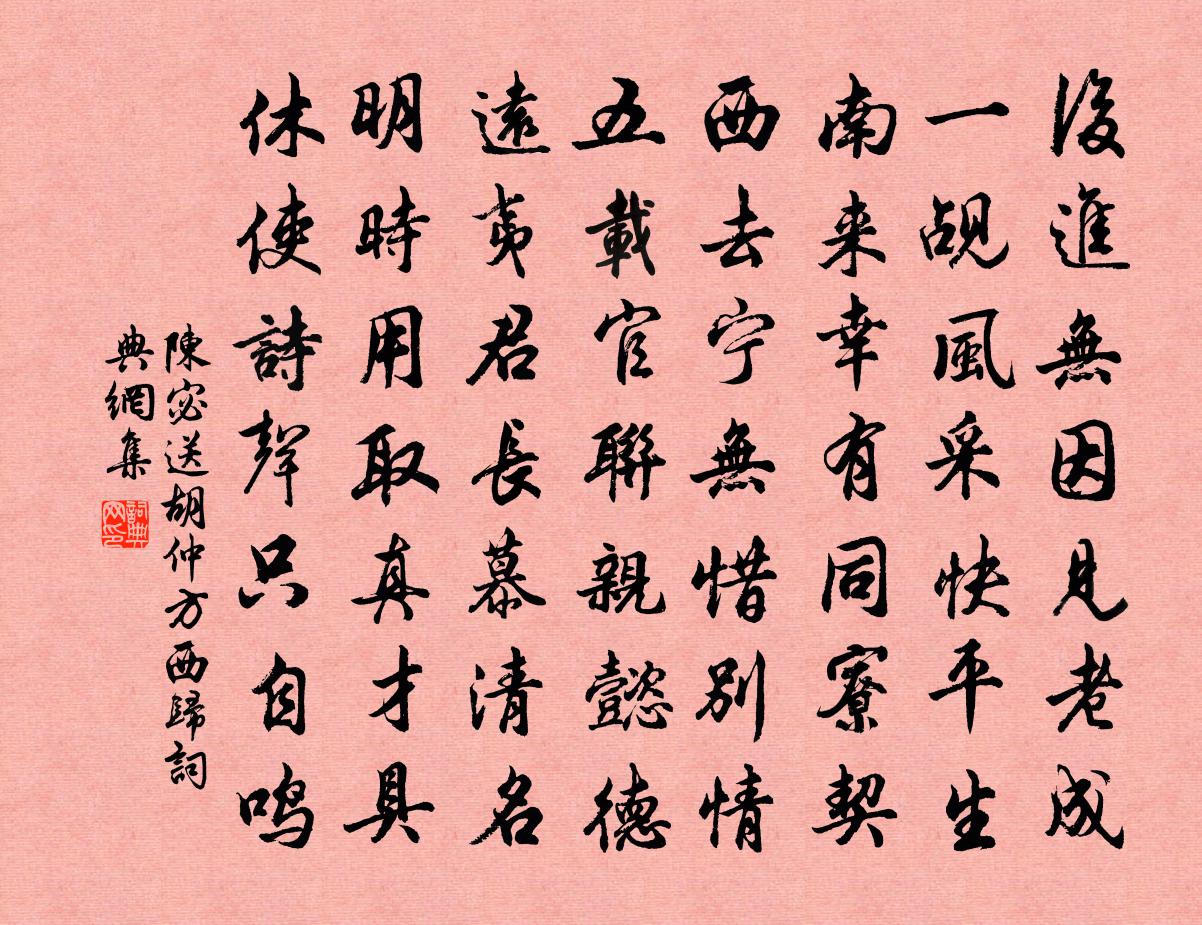 後進無因見老成
一覘風采快平生
南来幸有同寮契
西去宁無惜別情
五載官聯親懿德
遠夷君長慕清名
明時用取真才具
休使詩聲只自鸣
陳宓送胡仲方西歸詞
典網集
詞典网印